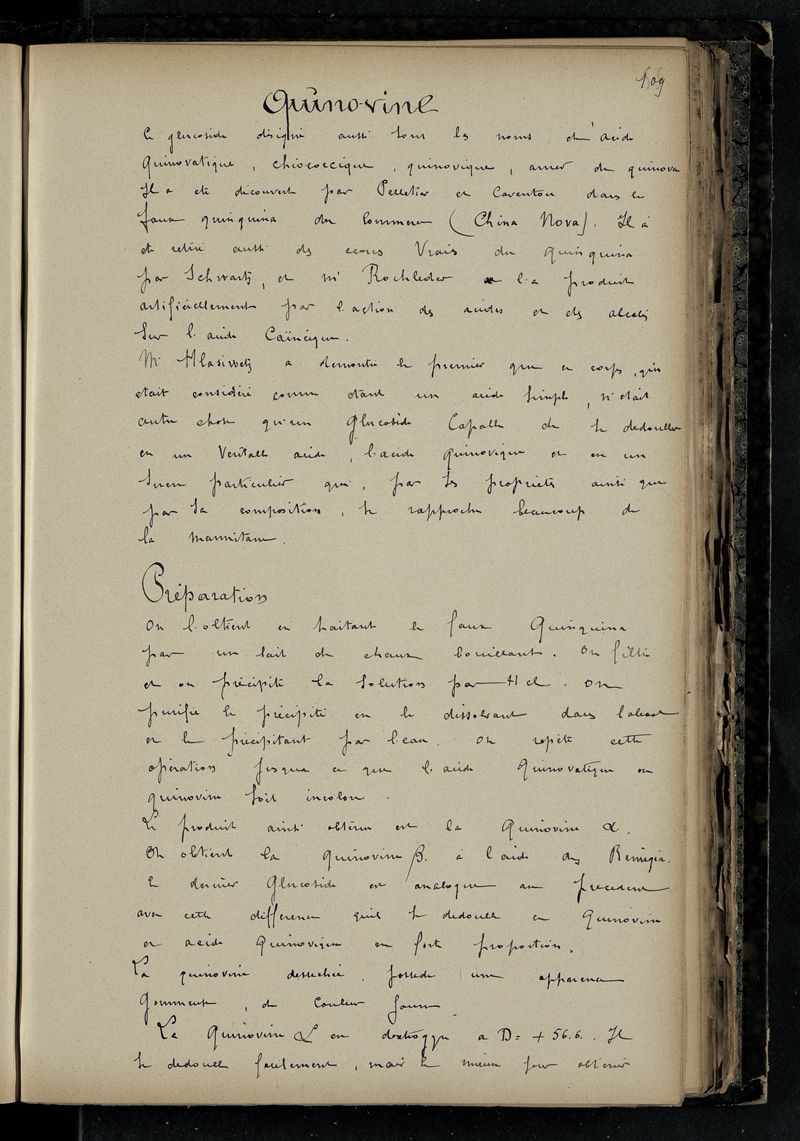 109
Quinovine
Ce glucoside désigné aussi sous les noms d'acide
quinovatique, chiococcique, quinovique, amer de quinova
Il a été découvert par Pelletier et Caventou dans le
faux quinquina du Commerce (China Nova). Il a
été retiré aussi des écorces Vraies du quinquina
par Schwartz, et Mr Rochleder l'a produit
artificiellement par l'action des acides et des alcalis
sur l'acide Caïncique.
Mr Hlasiwetz a démontré le premier que ce corps, qui
était considéré comme étant un acide simple, n'était
autre chose qu'un Glucoside Capable de se dédoubler
en un Véritable acide, l'acide quinovique et en un
Sucre particulier qui, par ses propriétés ainsi que
par sa composition, se rapproche beaucoup de
la mannitane.
Préparation
On l'obtient en traitant le faux Quinquina
par un lait de chaux bouillant. On filtre
et on précipite la solution par HCl. On
purifie le précipité en le dissolvant dans l'alcool
et le précipitant par l'eau. On répète cette
opération jusqu'a ce que l'acide Quinovatique ou
quinovine soit incolore.
Le produit ainsi obtenu est la Quinovine α.
On obtient la Quinovine β. à l'aide des Remigia.
Ce dernier Glucoside est analogue au précédent
avec cette différence qu'il se dédouble en Quinovine
et acide Quinovique en forte proportion.
La quinovine desséchée possède une apparence
gommeuse, de Couleur jaune
La Quinovine α est dextrogyre a D= + 56.6. Il
se dédouble facilement, mais le mieux pour obtenir